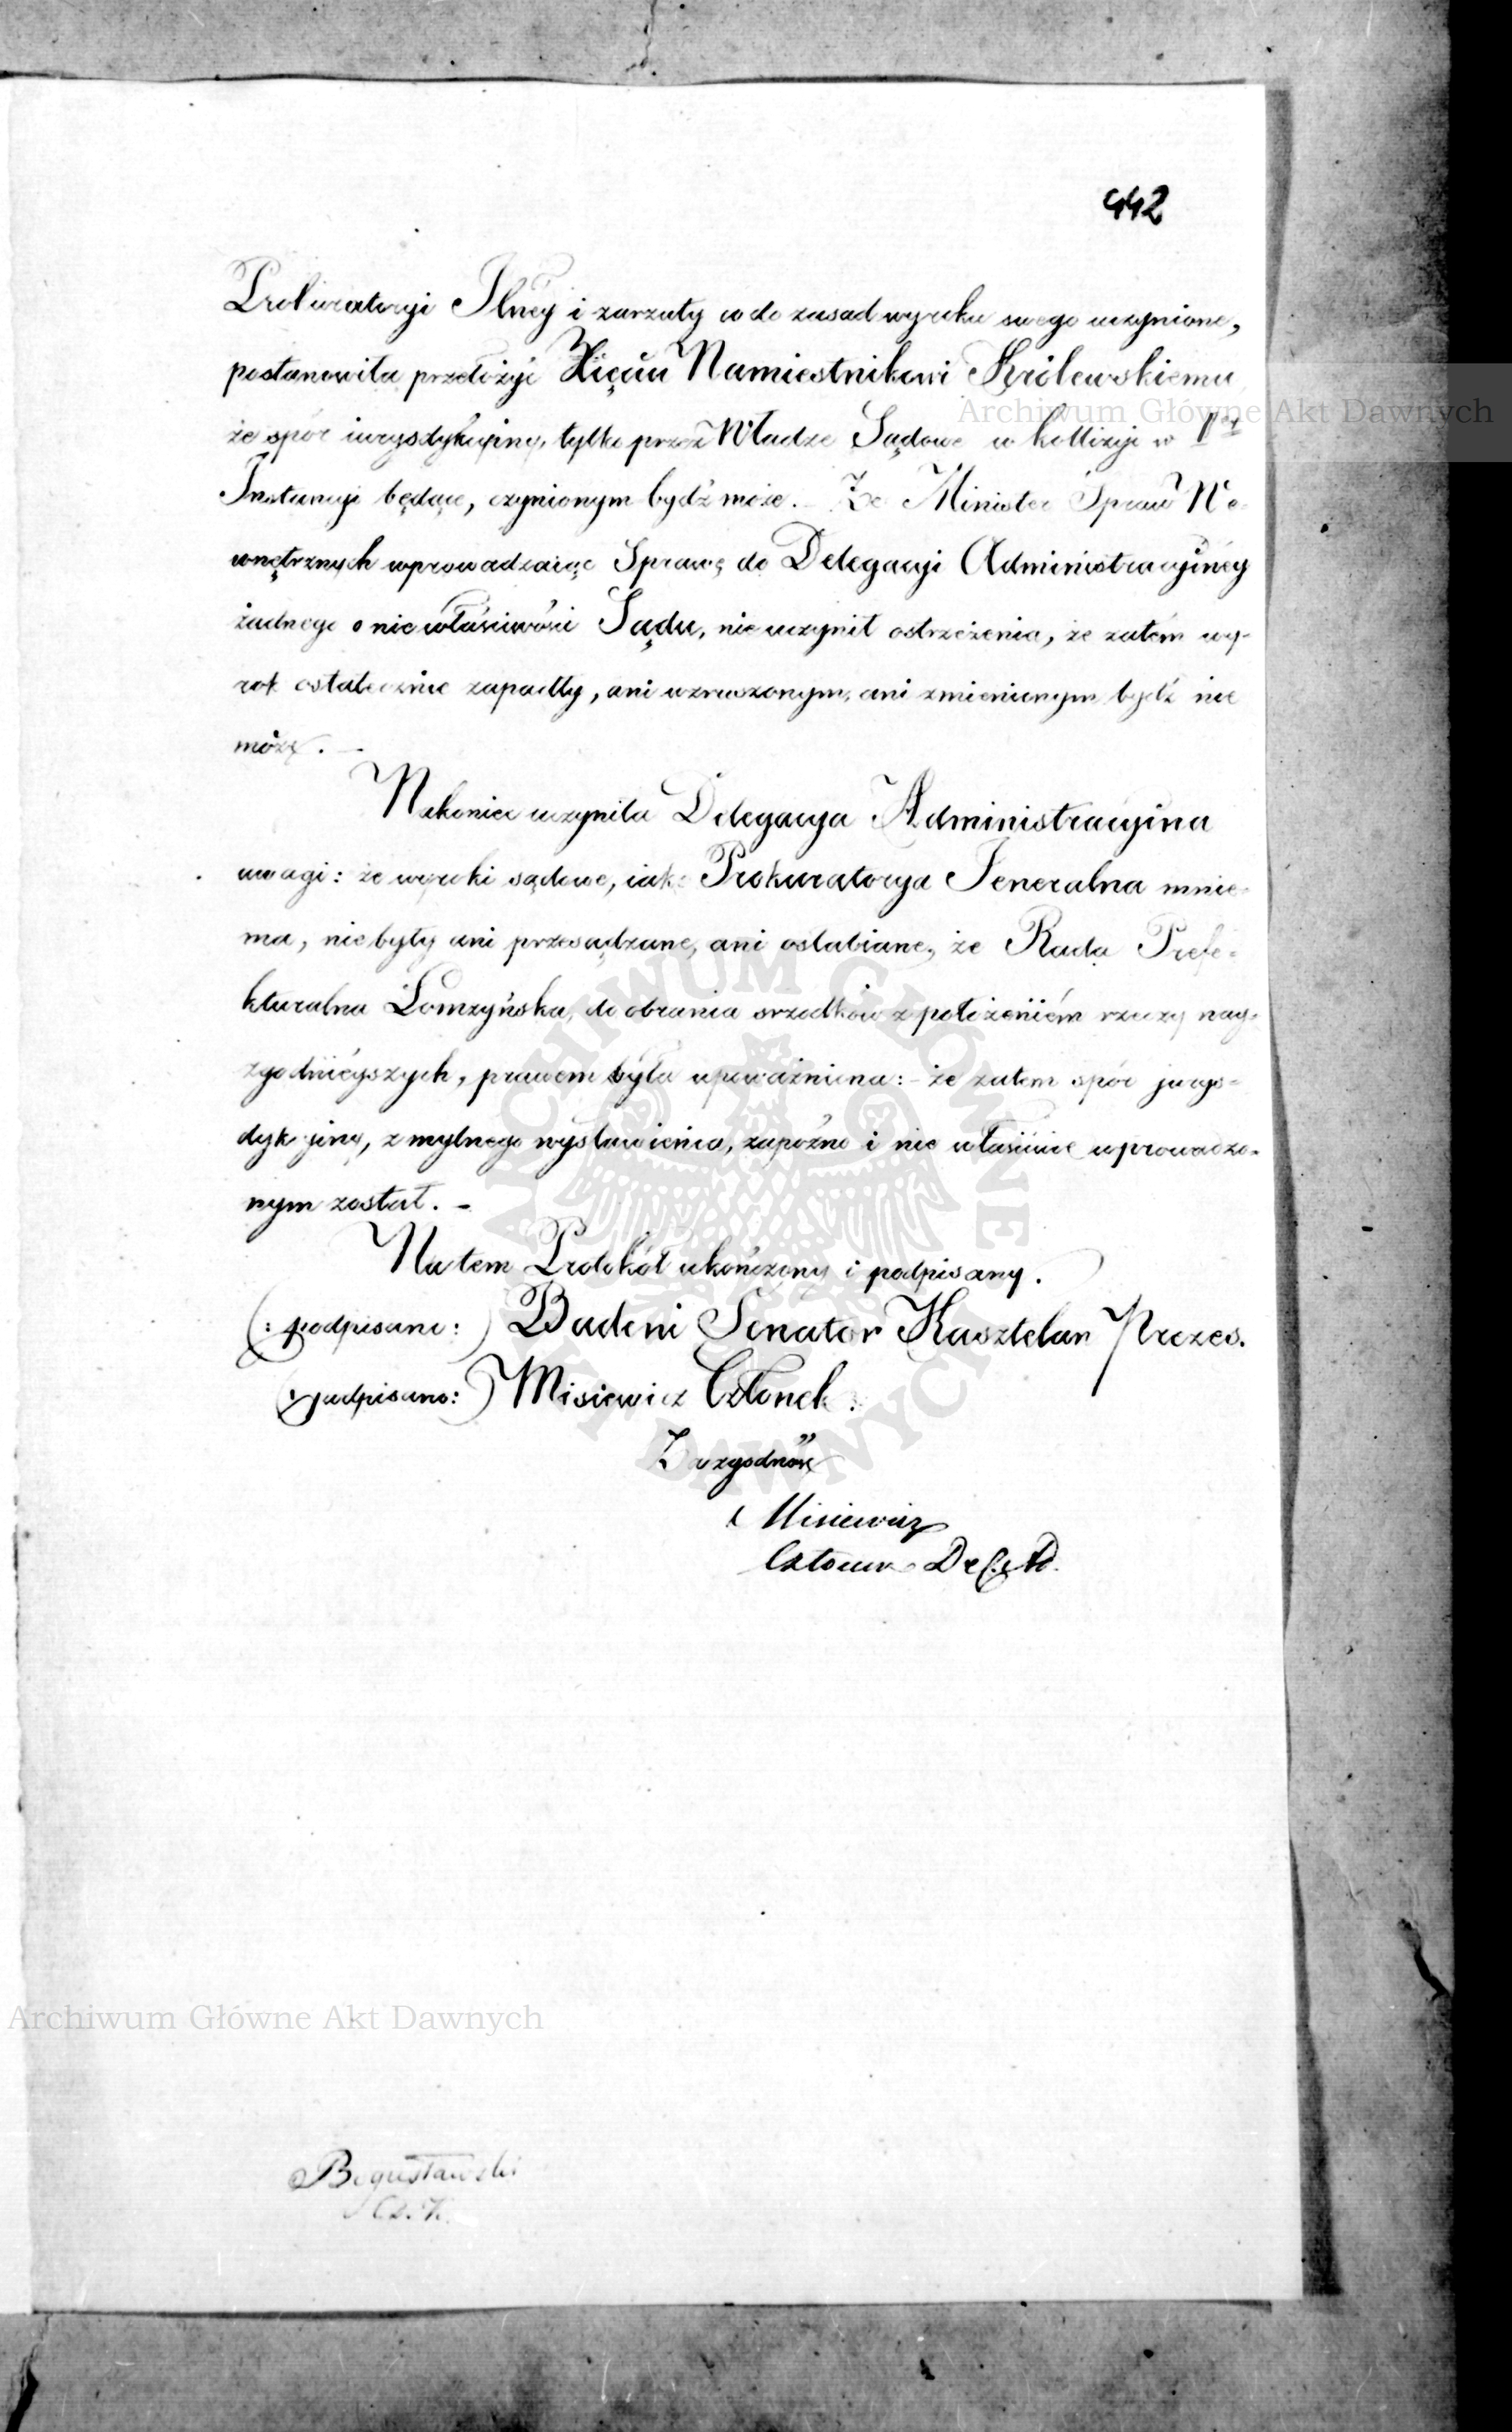 442
Prokuratoryi Jlney i zarzuty co do zasad wyroku swego uczynione,
postanowiła przełożyć Xięciu Namiestnikowi Królewskiemu
że spór iurysdykcyiny, tylko przez Władze Sądowe w kollizyi w Iey
Instancyi będące, czynionym bydź może. – Że Minister Spraw We-
wnętrznych wprowadzaiąc Sprawę do Delegacyi Administracyiney
żadnego o niewłaściwości Sądu, nie uczynił ostrzeżenia, że zatém wy-
rok ostatecznie zapadły, ani wzruszonym, ani zmienionym bydź nie
może. –
Nakoniec uczyniła Delegacya Administracyina
uwagi: że wyroki sądowe, iak Prokuratorya Jeneralna mnie-
ma, nie były ani przesądzane, ani osłabiane, że Rada Prefe-
kturalna Łomzyńska, do obrania srzodków z położeniém rzeczy nay-
zgodnieyszych, prawem była upoważniona: – że zatem spór jurys-
dykcyiny, z mylnego wystawienia, zapóźno i nie właściwie wprowadzo-
nym został. –
Na tem Protokół ukończony i podpisany.
(: podpisano :) Badeni Senator Kasztelan Prezes.
(: podpisano :) Misiewicz Członek.
Za zgodność
Misiewicz
Członek Del: Ad.
Archiwum Główne Akt Dawnych
Archiwum Główne Akt Dawnych
ARCHIWUM GŁÓWNE AKT DAWNYCH
Bogusławski